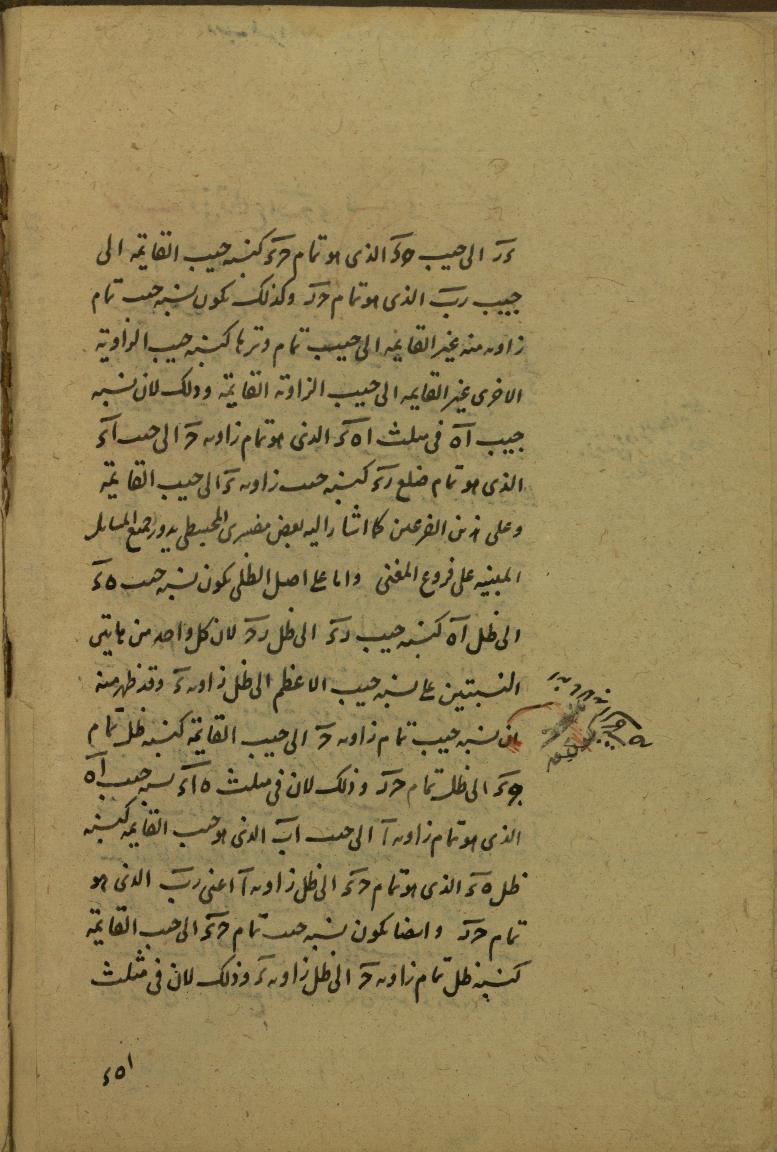 ءَر الى جيب هءَ الذى هو تمام حءَ كنسبه جيب القايمه الى
جيب رب الذى هو تمام حر وكذلك تكون نسبه جيب تمام
زاويه منه غير القايمه الى جيب تمام وترها كنسبه جيب الزاوية
الاخرى غير القايمه الى جيب الزاوية القايمة وذلك لان نسبه
جيب اه فى مثلث اهء الذى هو تمام زاويه ح الى جيب اء
الذى هو تمام ضلع رء كنسبه جيب زاويه ء الى جيب القايمة
وعلى هذين الفرعين كما اشار اليه بعض مفسرى المجسطى يدور جميع المسايل
المبنيه على فروع المغنى واما على اصل الظلى يكون نسبه جيب هء
الى ظل اه كنسبه جيب رء الى ظل رح لان كل واحد من هاتين
النسبتين على نسبه جيب الاعظم الى ظل زاويه ء وقد ظهر منه
ان نسبه جيب تمام زاويه ح الى جيب القايمة كنسبه ظل تمام
حء الى ظل تمام حر وذلك لان فى مثلث هاء نسبه جيب اه
الذى هو تمام زاويه ا الى جيب اب الذى هو جيب القايمه كنسبه
ظل هء الذى هو تمام حء الى ظل زاويه ا اعنى رب الذى هو
تمام حر وايضا يكون نسبه جيب تمام حء الى جيب القايمة
كنسبه ظل تمام زاويه ح الى ظل زاويه ء وذلك لان فى مثلث
اهء